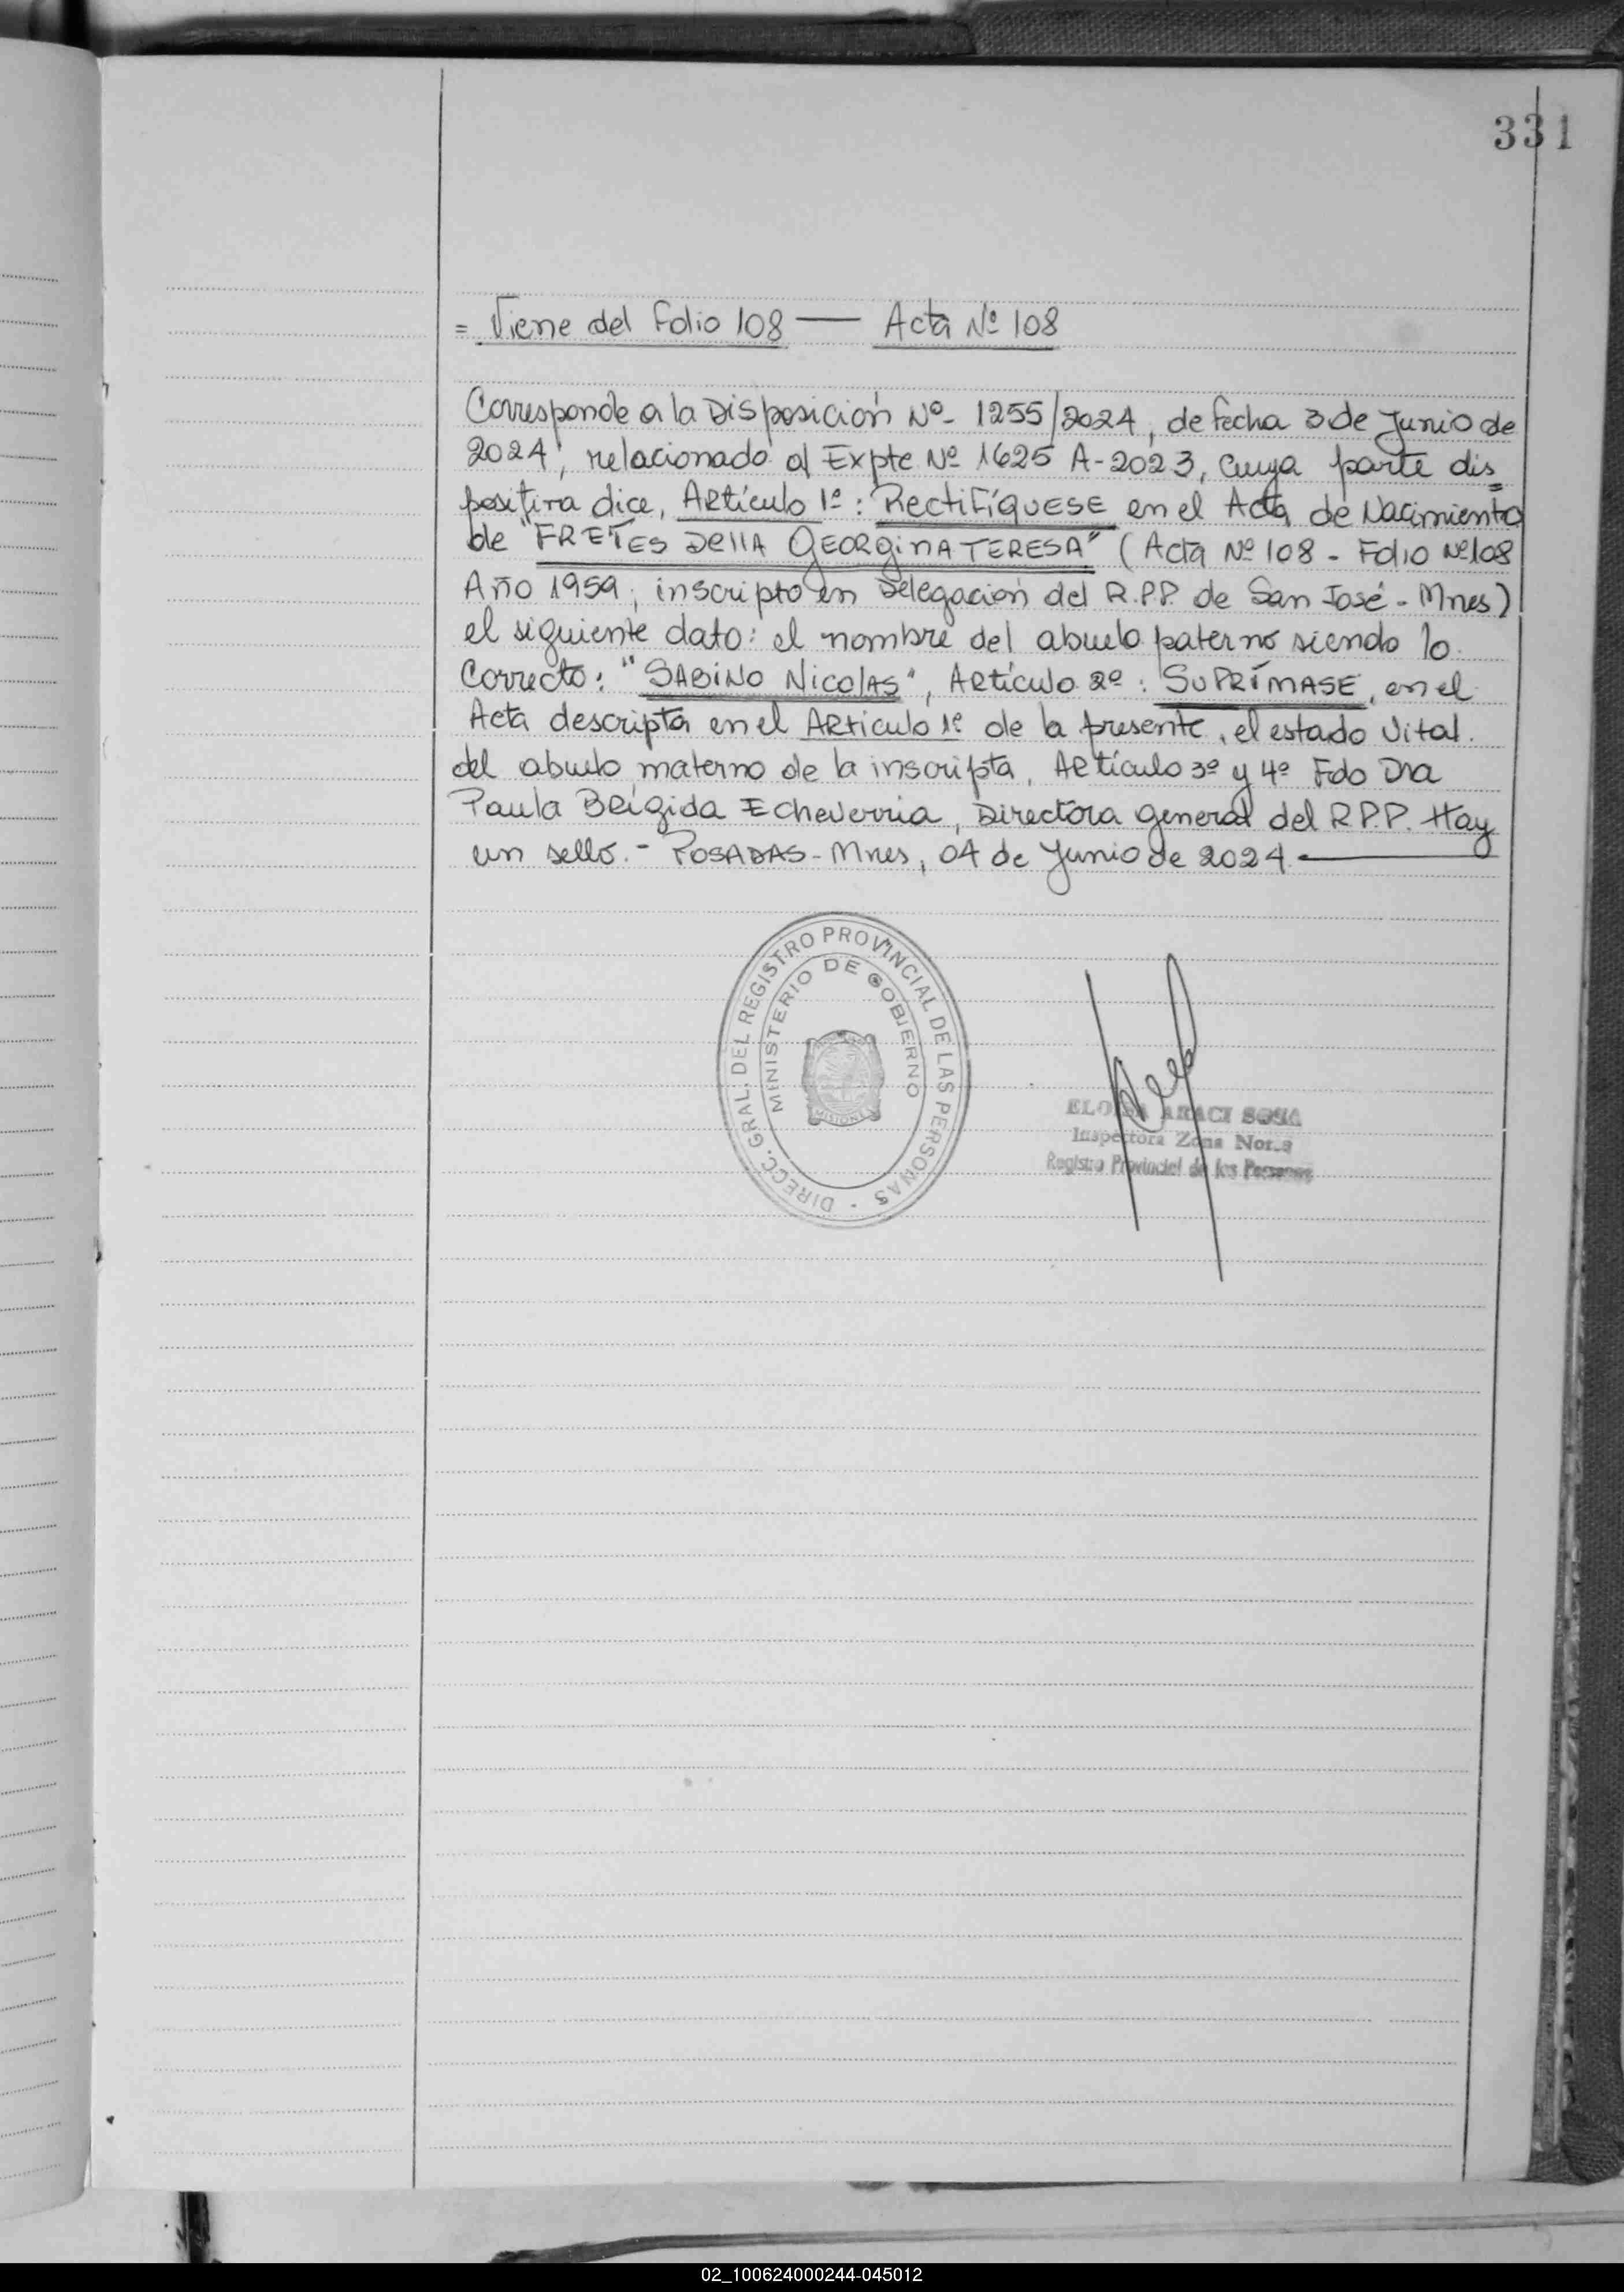 331
= Viene del Folio 108 — Acta Nº 108
Corresponde a la Disposición Nº- 1255/2024, de fecha 3 de Junio de
2024, relacionado al Expte Nº 1625 A-2023, cuya parte dis=
positiva dice, Artículo 1º: RectiFíQUESE en el Acta de Nacimiento
de "FRETES DellA GEORginA TERESA" (Acta Nº 108 - Folio Nº108
Año 1959, inscripto en Delegación del R.P.P. de San José - Mnes)
el siguiente dato: el nombre del abuelo paterno siendo lo
Correcto: "SABINO NicolAS", Artículo 2º: SUPRÍMASE, en el
Acta descripta en el Articulo 1º de la presente, el estado Vital.
del abuelo materno de la inscripta, Artículo 3º y 4º Fdo Dra
Paula Brígida Echeverria, Directora general del R.P.P. Hay
un sello.- POSADAS - Mnes, 04 de Junio de 2024 —
DIRECC. GRAL. DEL REGISTRO PROVINCIAL DE LAS PERSONAS
MINISTERIO DE GOBIERNO
MISIONES
ELOISA ARACI SOSA
Inspectora Zona Norte
Registro Provincial de las Personas
02_100624000244-045012